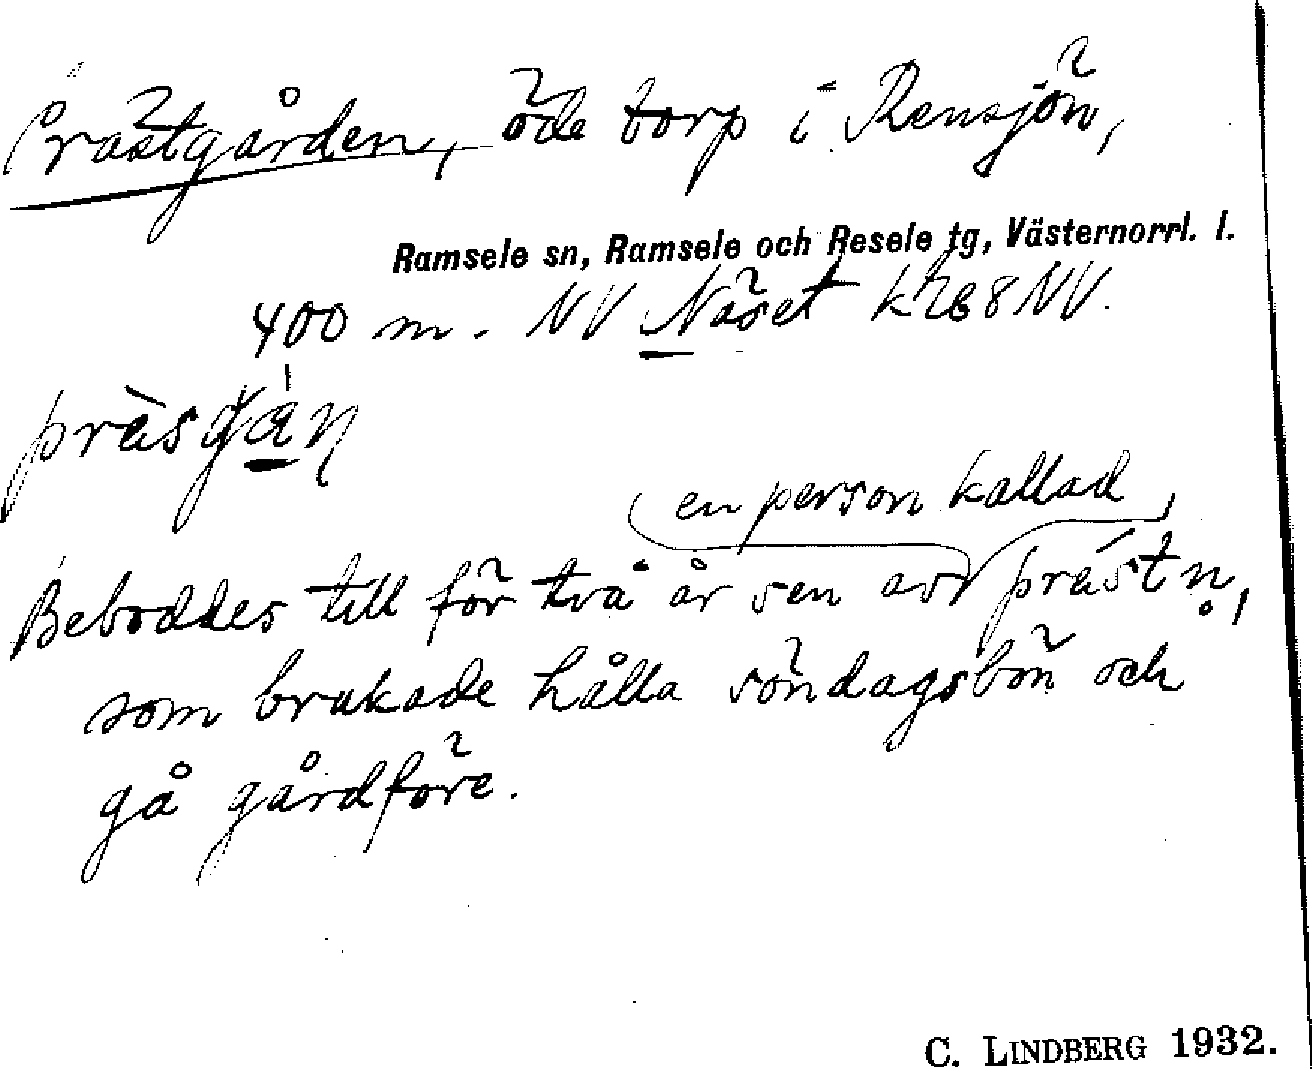 Prästgården, öde torp i Rensjön,
Ramsele sn, Ramsele och Resele tg, Västernorrl. l.
400 m. NV Näset 8 NV.
en person kallad
Beboddes till för två år sen av prästn,
som brukade hålla söndagsbön och
gå gårdföre.
C. LINDBERG 1932.